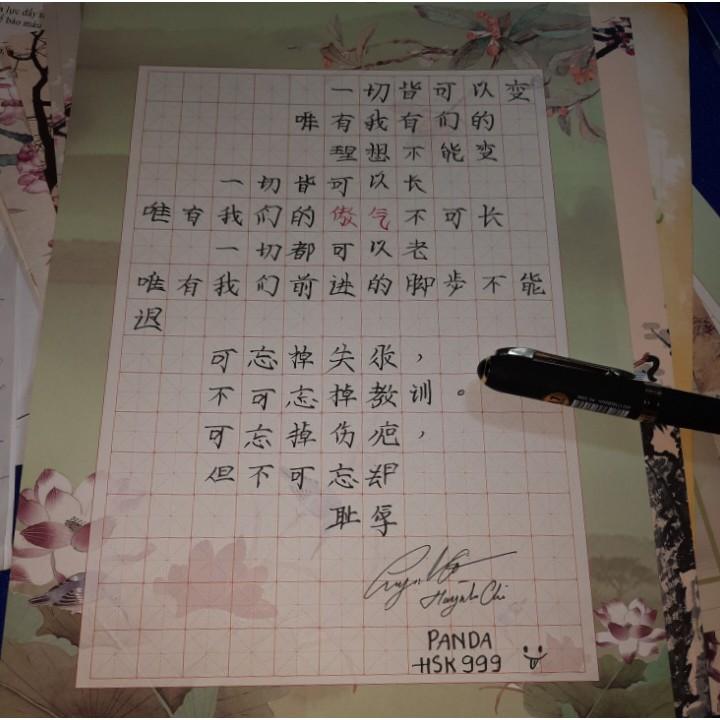 一切皆可以变
唯有我有们的
理想不能变
一切皆可以长
唯有我们的傲气不可长
一切都可以老
唯有我们前进的脚步不能
退
可忘掉失败，
不可忘掉教训。
可忘掉伤疤，
但不可忘却
耻辱
Huynh Chi
PANDA
HSK999